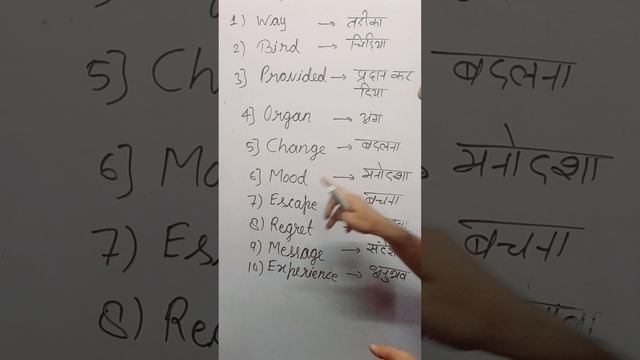 1) Way → तरीका
2) Bird → चिड़िया
3) Provided → प्रदान कर
दिया
4) Organ → अंग
5) Change → बदलना
6) Mood → मनोदशा
7) Escape बचना
8) Regret
9) Message → संदेश
10) Experience → अनुभव